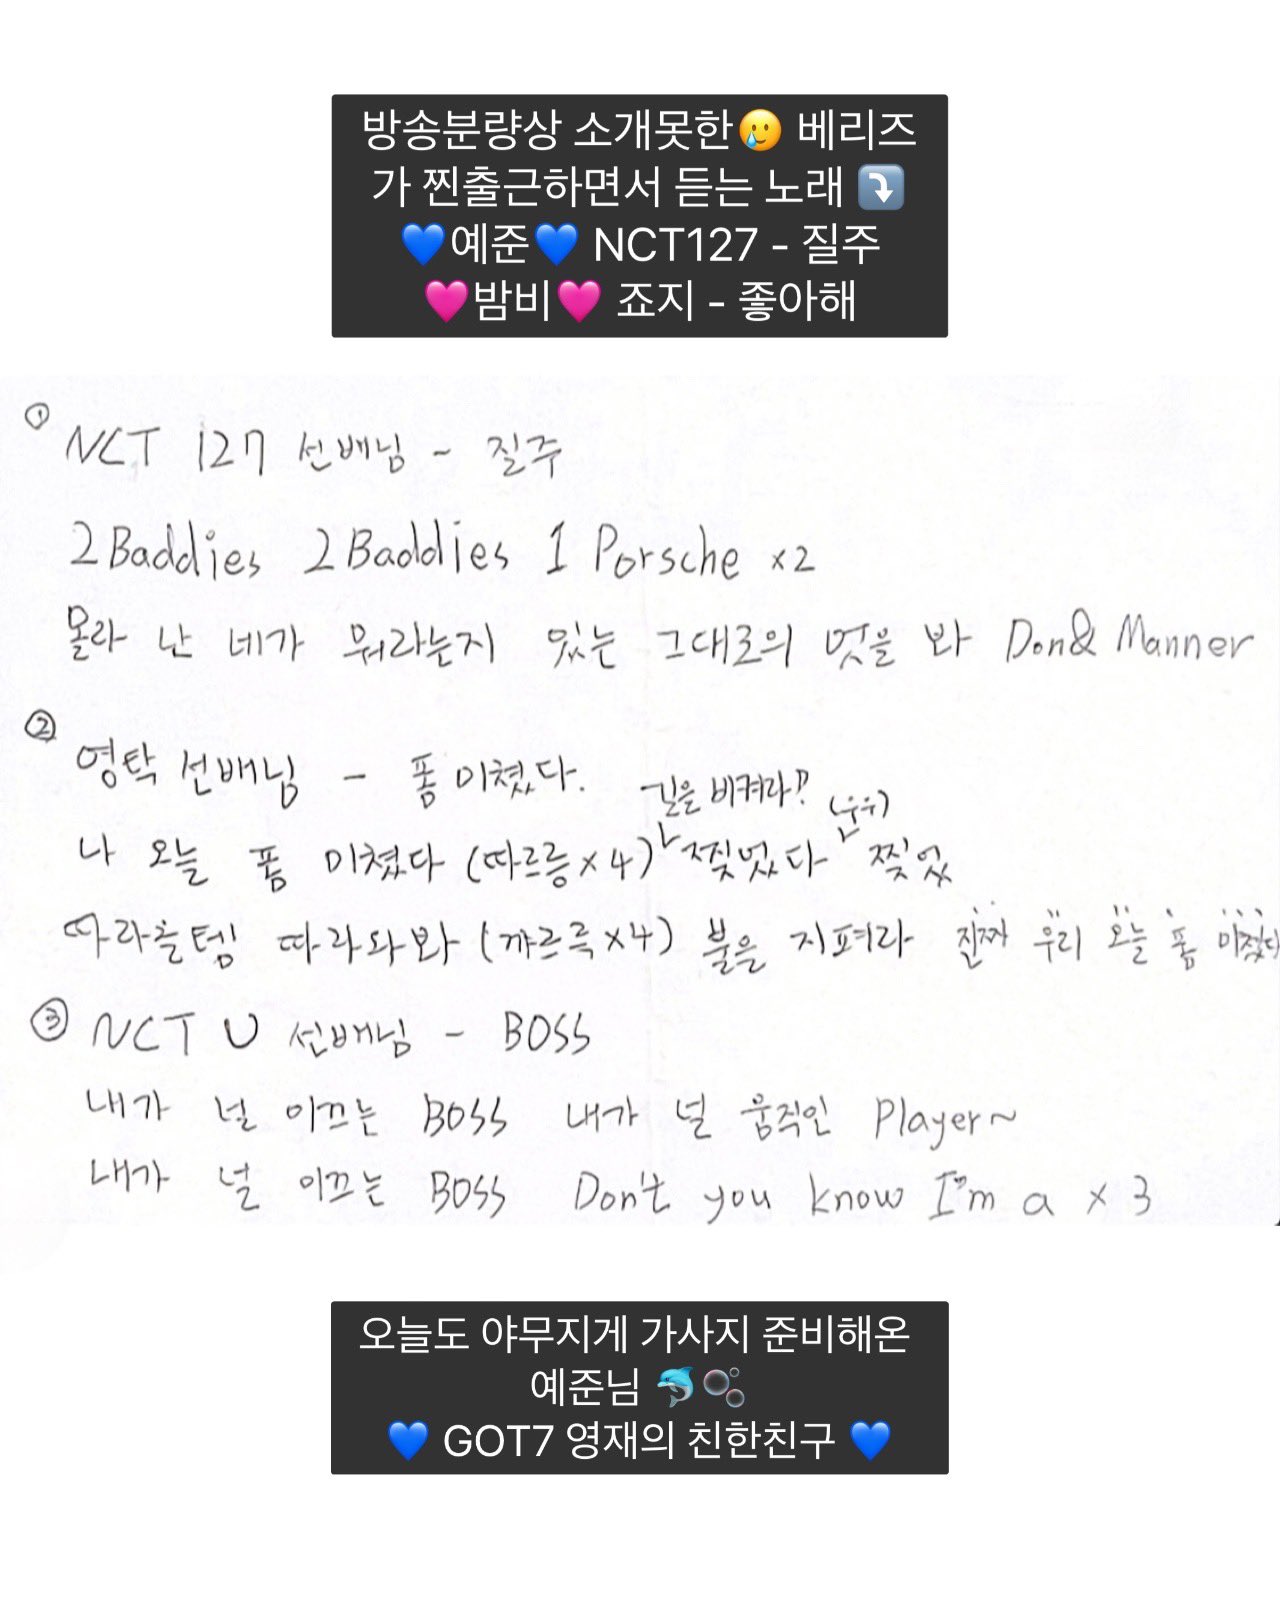 방송분량상 소개못한🥲 베리즈
가 찐출근하면서 듣는 노래 ⤵️
💙예준💙 NCT127 - 질주
🩷밤비🩷 죠지 - 좋아해
① NCT 127 선배님 - 질주
2 Baddies 2 Baddies 1 Porsche x2
몰라 난 네가 뭐라는지 있는 그대로의 멋을 봐 Don& Manner
② 영탁 선배님 - 폼 미쳤다.
길을 비켜라?
(우우)
나 오늘 폼 미쳤다 (따르릉 x 4) 찢었다 찢었
따라올템 따라와봐 (꺄르륵 x4) 불을 지펴라 진짜 우리 오늘 폼 미쳤다
③ NCT U 선배님 - BOSS
내가 널 이끄는 BOSS 내가 널 움직인 Player~
내가 널 이끄는 BOSS Don't you know I'm a x 3
오늘도 야무지게 가사지 준비해온
예준님 🐬🫧
💙 GOT7 영재의 친한친구 💙